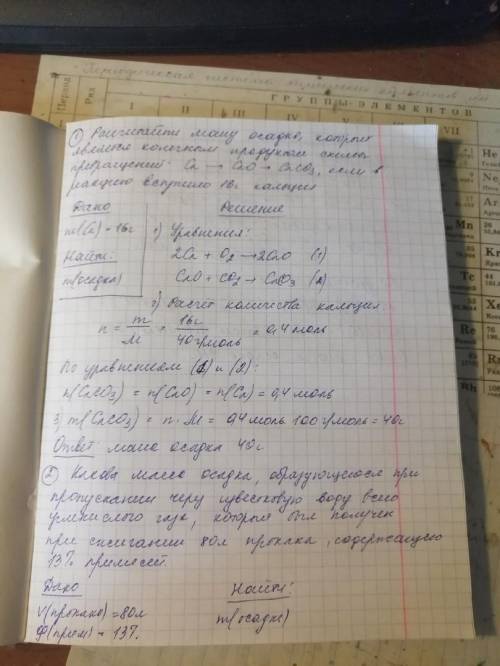 Периодическая система
Период
Ряд
ГРУППЫ ЭЛЕМЕНТОВ
I II III IV V VI VII
① Рассчитайте массу осадка, который
является конечным продуктом схемы
превращений: Ca → CaO → CaCO3, если в
реакцию вступило 16г кальция
Дано Решение
m(Ca) = 16г 1) Уравнения:
Найти: 2Ca + O2 → 2CaO (1)
m(осадка) CaO + CO2 → CaCO3 (2)
2) Расчет количества кальция.
n = m/M = 16г/40г/моль = 0,4 моль
По уравнениям (1) и (2):
n(CaCO3) = n(CaO) = n(Ca) = 0,4 моль
3) m(CaCO3) = n · M = 0,4 моль · 100 г/моль = 40г
Ответ: масса осадка 40г.
② Какова масса осадка, образующегося при
пропускании через известковую воду всего
углекислого газа, который был получен
при сжигании 80л пропана, содержащего
13% примесей.
Дано Найти:
V(пропана) = 80л m(осадка)
φ(прим) = 13%
He
Ne
Ar
Mn
Kr
Tc
Xe
Re
Rn